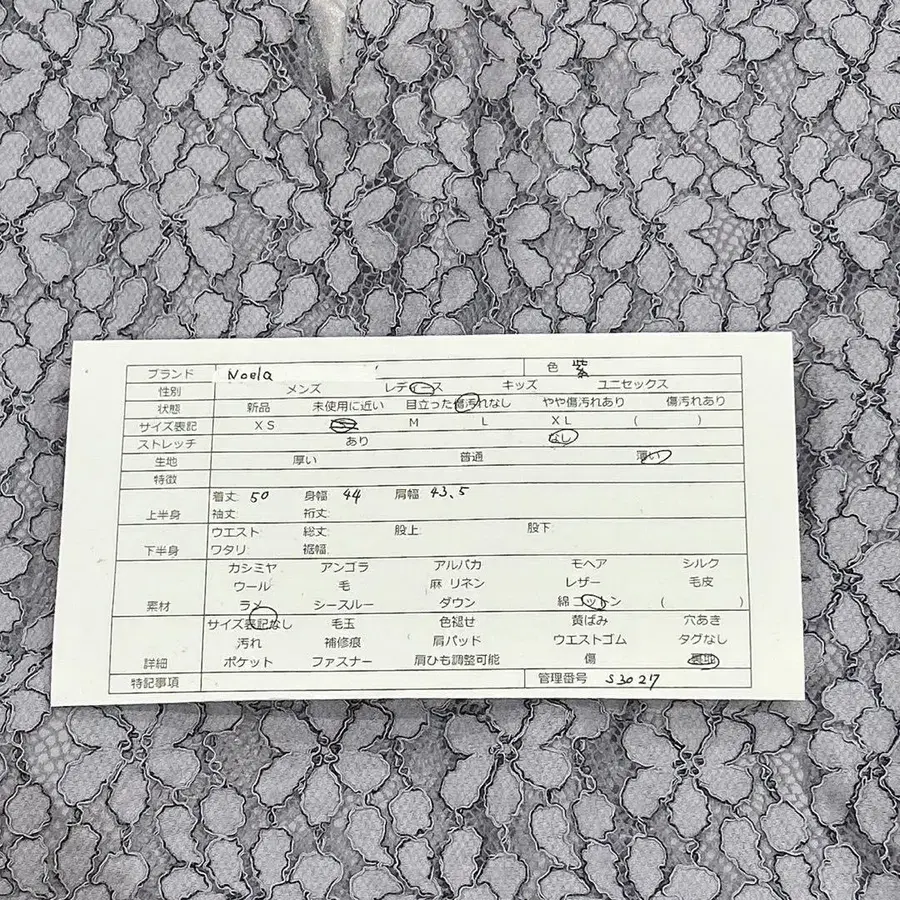 ブランド Noela 色 紫
性別 メンズ レディース キッズ ユニセックス
状態 新品 未使用に近い 目立った傷汚れなし やや傷汚れあり 傷汚れあり
サイズ表記 XS S M L XL ( )
ストレッチ あり なし
生地 厚い 普通 薄い
特徴
上半身 着丈: 50 身幅 44 肩幅 43.5
袖丈: 裄丈:
下半身 ウエスト 総丈: 股上: 股下:
ワタリ: 裾幅:
素材 カシミヤ アンゴラ アルパカ モヘア シルク
ウール 毛 麻 リネン レザー 毛皮
ラメ シースルー ダウン 綿 コットン ( )
詳細 サイズ表記なし 毛玉 色褪せ 黄ばみ 穴あき
汚れ 補修痕 肩パッド ウエストゴム タグなし
ポケット ファスナー 肩ひも調整可能 傷
特記事項 管理番号 S3027